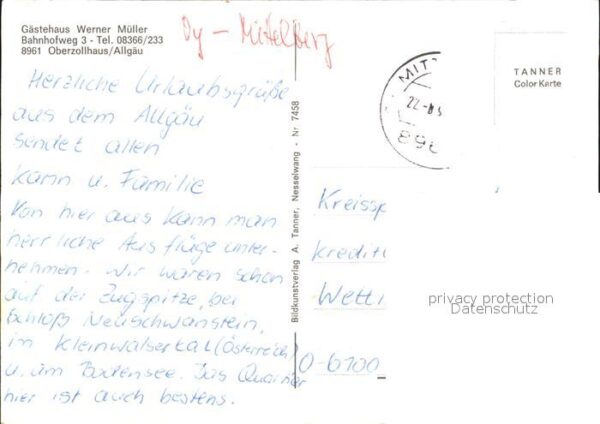 Gästehaus Werner Müller
Bahnhofweg 3 - Tel. 08366/233
8961 Oberzollhaus/Allgäu
Oy - Mittelberg
TANNER
Color Karte
MITT
22.-8.
896
Herzliche Urlaubsgrüße
aus dem Allgäu
sendet allen
Kamm u. Familie
Von hier aus kann man
herrliche Ausflüge unter-
nehmen. Wir waren schon
auf der Zugspitze, bei
Schloß Neuschwanstein,
im Kleinwalsertal (Österreich)
u. am Bodensee. Das Quartier
hier ist auch bestens.
Bildkunstverlag A. Tanner, Nesselwang - Nr 7458
Kreissp
krediti
Wetti
O-6100
privacy protection
Datenschutz